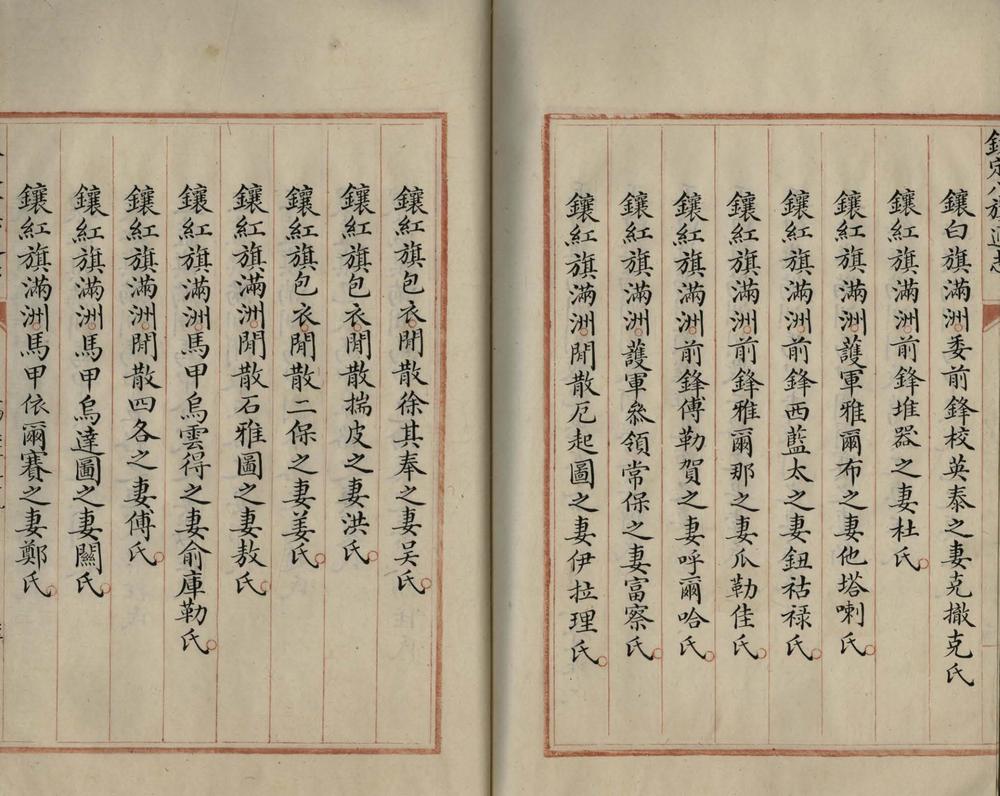 欽定八旗通志
鑲白旗滿洲委前鋒校英泰之妻克撤克氏
鑲紅旗滿洲前鋒堆器之妻杜氏
鑲紅旗滿洲護軍雅爾布之妻他塔喇氏
鑲紅旗滿洲前鋒西藍太之妻鈕祜祿氏
鑲紅旗滿洲前鋒雅爾那之妻瓜勒佳氏
鑲紅旗滿洲前鋒傅勒賀之妻呼爾哈氏
鑲紅旗滿洲護軍叅領常保之妻富察氏
鑲紅旗滿洲閒散厄起圖之妻伊拉理氏
鑲紅旗包衣閒散徐其奉之妻吴氏
鑲紅旗包衣閒散揣皮之妻洪氏
鑲紅旗包衣閒散二保之妻姜氏
鑲紅旗滿洲閒散石雅圖之妻敖氏
鑲紅旗滿洲馬甲烏雲得之妻俞庫勒氏
鑲紅旗滿洲閒散四各之妻傅氏
鑲紅旗滿洲馬甲烏達圖之妻關氏
鑲紅旗滿洲馬甲依爾賽之妻鄭氏